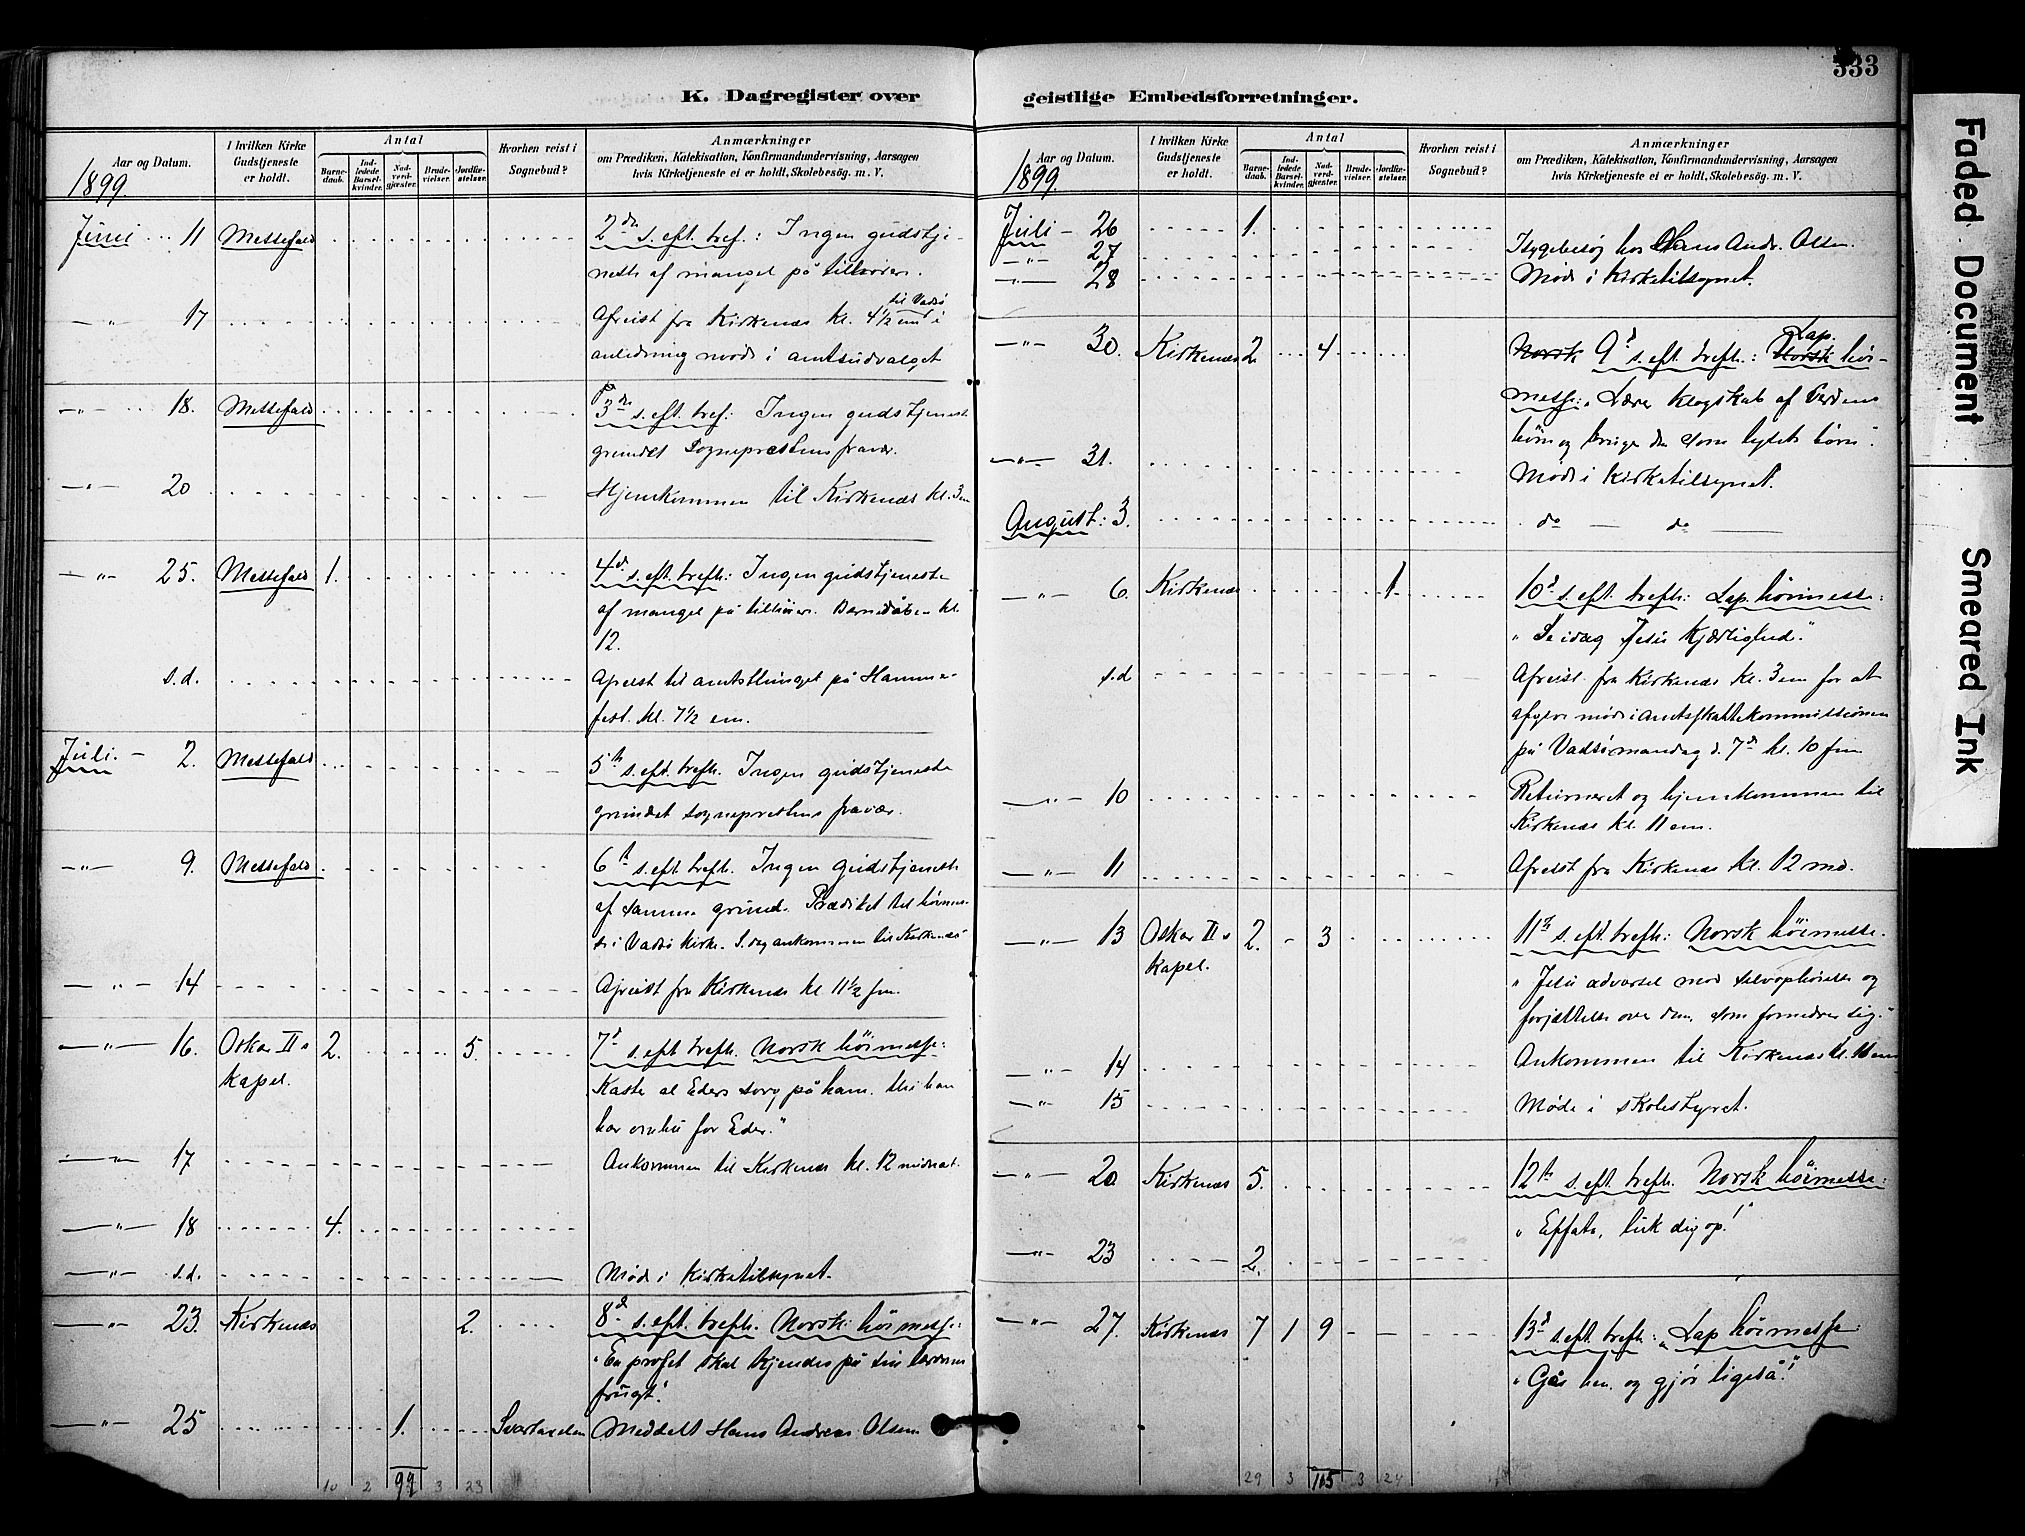 333
K. Dagregister over
geistlige Embedsforretninger.
Aar og Datum.
1899
I hvilken Kirke Gudstjeneste er holdt.
Antal
Barnedaab.
Indledede Barselkvinder.
Nadverdgjester.
Brudevielser.
Jordfæstelser.
Hvorhen reist i Sognebud?
Anmærkninger
om Prædiken, Katekisation, Konfirmandundervisning, Aarsagen
hvis Kirketjeneste ei er holdt, Skolebesøg. m. V.
Juni 11 Messefald 2den s. eft. tref.: Ingen gudstje-
neste af mangel på tilhörere.
-"- 17 Afreist fra Kirkenæs kl. 4 1/2 em til Vadsö i
anledning möde i amtsudvalget
-"- 18. Messefald 3de s. eft. tref: Ingen gudstjeneste
grundet Sogneprestens fravær.
-"- 20 Hjemkommen til Kirkenæs kl. 3 em
-"- 25. Messefald 1. 4d s. eft. trefh: Ingen gudstjeneste
af mangel på tilhörere. Barnedåben kl.
12.
s.d. Afreist til amtsthinget på Hammer-
fest. kl. 7 1/2 em.
Juli. - 2. Messefald 5te s. eft. trefh. Ingen gudstjeneste
grundet sogneprestens fravær.
-"- 9. Messefald 6te s. eft. trefh. Ingen gudstjeneste
af samme grund. Prædiket til höimes-
se i Vadsö kirke. S. dag ankommen til Kirkenæs
-"- 14 Afreist fra Kirkenæs kl 11 1/2 fm.
-"- 16. Oskar II s 2. 5. 7d s. eft trefh. Norsk höimesse:
kapel. Kaste al Eders sorg på ham. thi han
har omhu for Eder."
-"- 17 Ankommen til Kirkenæs kl. 12 midnat.
-"- 18 4.
-"- s.d. Möde i kirketilsynet.
-"- 23. Kirkenæs 2. 8d s. eft. trefh. Norsk höimesse:
"En profet skal kjendes på sin lærdoms
frugt".
-"- 25 1. Meddelt Hans Andreas Olsen
10 2 99 3 23
Aar og Datum.
1899.
I hvilken Kirke Gudstjeneste er holdt.
Antal
Barnedaab.
Indledede Barselkvinder.
Nadverdgjester.
Brudevielser.
Jordfæstelser.
Hvorhen reist i Sognebud?
Anmærkninger
om Prædiken, Katekisation, Konfirmandundervisning, Aarsagen
hvis Kirketjeneste ei er holdt, Skolebesøg. m. V.
Juli - 26 1.
-"- 27 Sygebesög hos Hans Andr. Olsen.
-"- 28 Möde i Kirketilsynet.
-"- 30. Kirkenæs 2 4 Norsk 9d s. eft trefh.: Norsk Lap. höi-
messe: "Lærer klogskab af Verdens
börn og bruger den som lysets börn".
-"- 31. Möde i Kirketilsynet.
August: 3. do - do
-"- 6. Kirkenæs 1. 10d s. eft. trefh: Lap. höimesse:
"Se idag Jesu Kjærlighed."
s.d Afreist fra Kirkenæs kl. 3 em for at
afgive möde i amtsskattekommissionen
på Vadsö mandag d. 7d kl. 10 fm
-"- 10 Returneret og hjemkommen til
Kirkenæs kl. 11 em.
-"- 11 Afreist fra Kirkenæs kl. 12 md.
-"- 13 Oskar II s 2. - 3 11te s. eft. trefh: Norsk höimesse.
kapel. "Jesu advarsel mod selvophöielse og
forjættelse over den, som fornedrer sig."
-"- 14 Ankommen til Kirkenæs kl. 11 em
-"- 15 Möde i skolestyret.
-"- 20. Kirkenæs 5. 12te s. eft. trefh. Norsk höimesse:
"Effata, luk dig op!"
-"- 23 2.
-"- 27. Kirkenæs 7 1 9 13d s. eft. trefh: "Lap höimesse:
"Gå hen og gjör ligeså!"
29 3 115 3 24
Faded Document
Smeared Ink